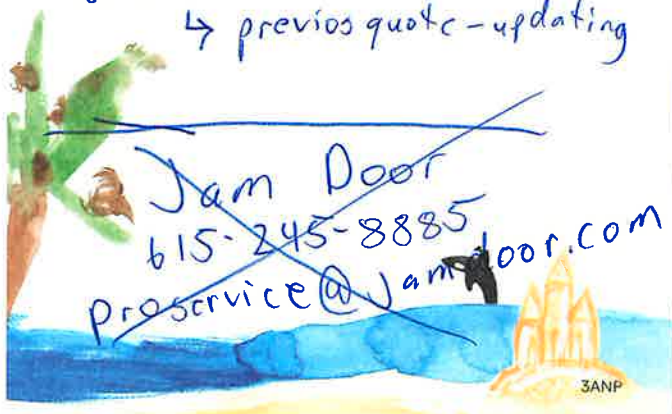 ↳ previos quote - updating
Jam Door
615-245-8885
proservice@jamdoor.com
3ANP